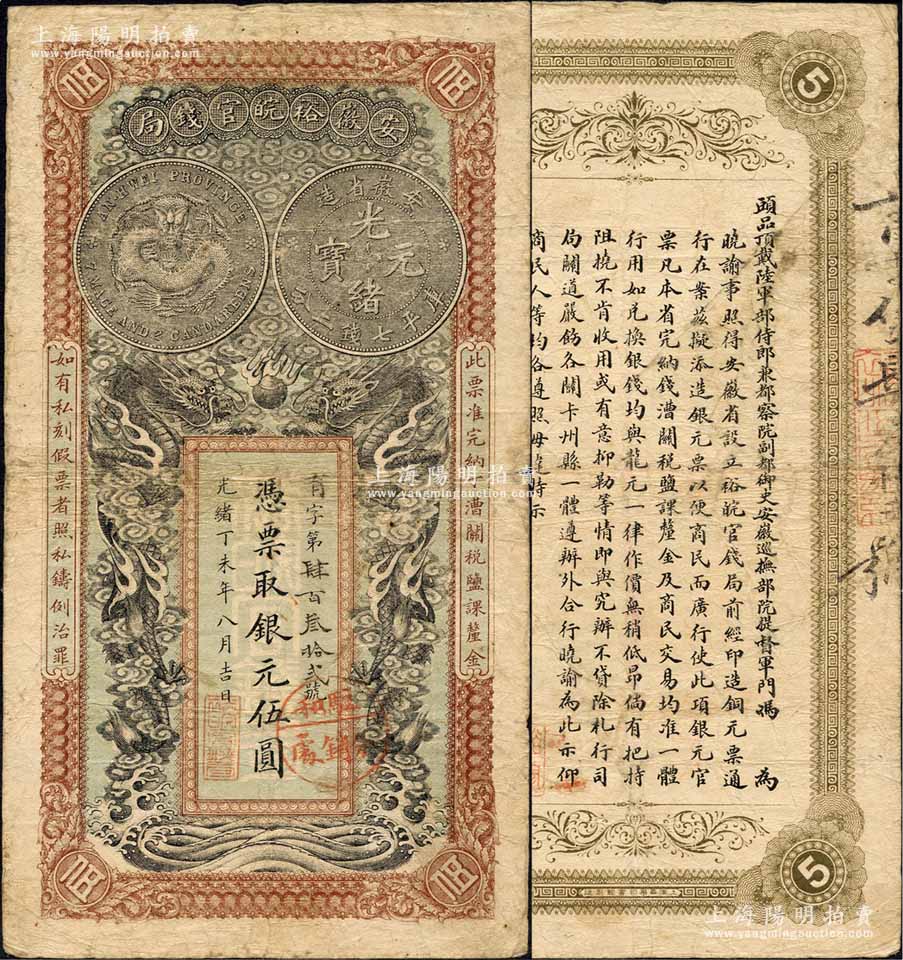 上海陽明拍賣
www.yangmingauction.com
伍
伍
安徽裕皖官錢局
AN-HWEI PROVINCE
7 MACE AND 2 CANDAREENS
安徽省造
光緒元寶
庫平七錢
此票准完納
漕關稅鹽課釐金
育字第肆百叁拾弍號
憑票取銀元伍圓
光緒丁未年八月吉日
如有私刻假票者照私鑄例治罪
上海陽明拍賣
www.yangmingauction.com
伍
伍
5
頭品頂戴陸軍部侍郎兼都察院副都御史安徽巡撫部院提督軍門馮 為
曉諭事照得安徽省設立裕皖官錢局前經印造銅元票通
行在案茲擬添造銀元票以便商民而廣行使此項銀元官
票凡本省完納錢漕關稅鹽課釐金及商民交易均准一體
行用如兌換銀錢均與龍元一律作價無稍低昂倘有把持
阻撓不肯收用或有意抑勒等情即與究辦不貸除札行司
局關道嚴飭各關卡州縣一體遵辦外合行曉諭為此示仰
商民人等均各遵照毋違特示
5
上海陽明拍賣
www.yangmingauction.com